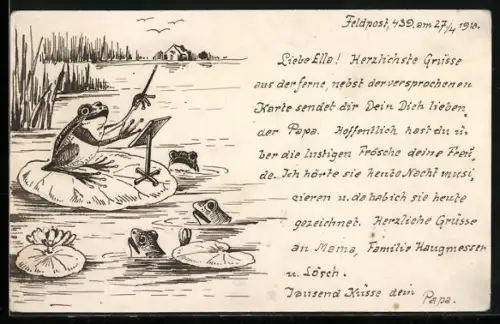 Feldpost, 439. am 27/4 1918.
Liebe Ella! Herzlichste Grüsse
aus der ferne, nebst der versprochenen
Karte sendet dir Dein Dich lieben,
der Papa. Hoffentlich hast du ü-
ber die lustigen Frösche deine Freu-
de. Ich hörte sie heute Nacht musi,
cieren u. da hab ich sie heute
gezeichnet. Herzliche Grüsse
an Mama, Familie Haugmesser
u. Lösch.
Tausend Küsse dein Papa.